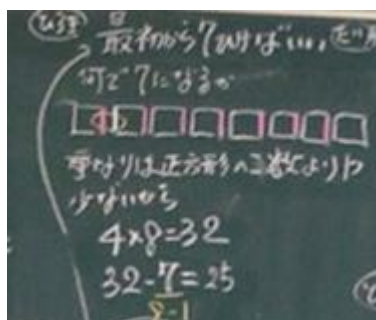 ひろき
最初から7ひけばいい。
何で7になるか
重なりは正方形の数より1つ
少ないから
4×8=32
32-7=25
8-1